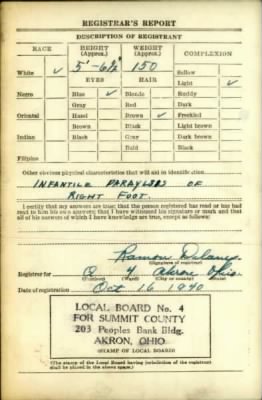 REGISTRAR'S REPORT
DESCRIPTION OF REGISTRANT
RACE HEIGHT (Approx.) WEIGHT (Approx.) COMPLEXION
5'-6½ 150 Sallow
White ✓ EYES HAIR Light ✓
Negro Blue ✓ Blonde Ruddy
Gray Red Dark
Oriental Hazel Brown ✓ Freckled
Brown Black Light brown
Indian Black Gray Dark brown
Bald Black
Filipino
Other obvious physical characteristics that will aid in identification
INFANTILE PARALYSIS OF
RIGHT FOOT.
I certify that my answers are true; that the person registered has read or has had
read to him his own answers; that I have witnessed his signature or mark and that
all of his answers of which I have knowledge are true, except as follows:
Ramon
(Signature of registrar)
Registrar for 4 Akron Ohio
(Precinct) (Ward) (City or county) (State)
Date of registration Oct 16 1940
LOCAL BOARD No. 4
FOR SUMMIT COUNTY
203 Peoples Bank Bldg.
AKRON, OHIO
(STAMP OF LOCAL BOARD)
(The stamp of the Local Board having jurisdiction of the registrant
shall be placed in the above space.)